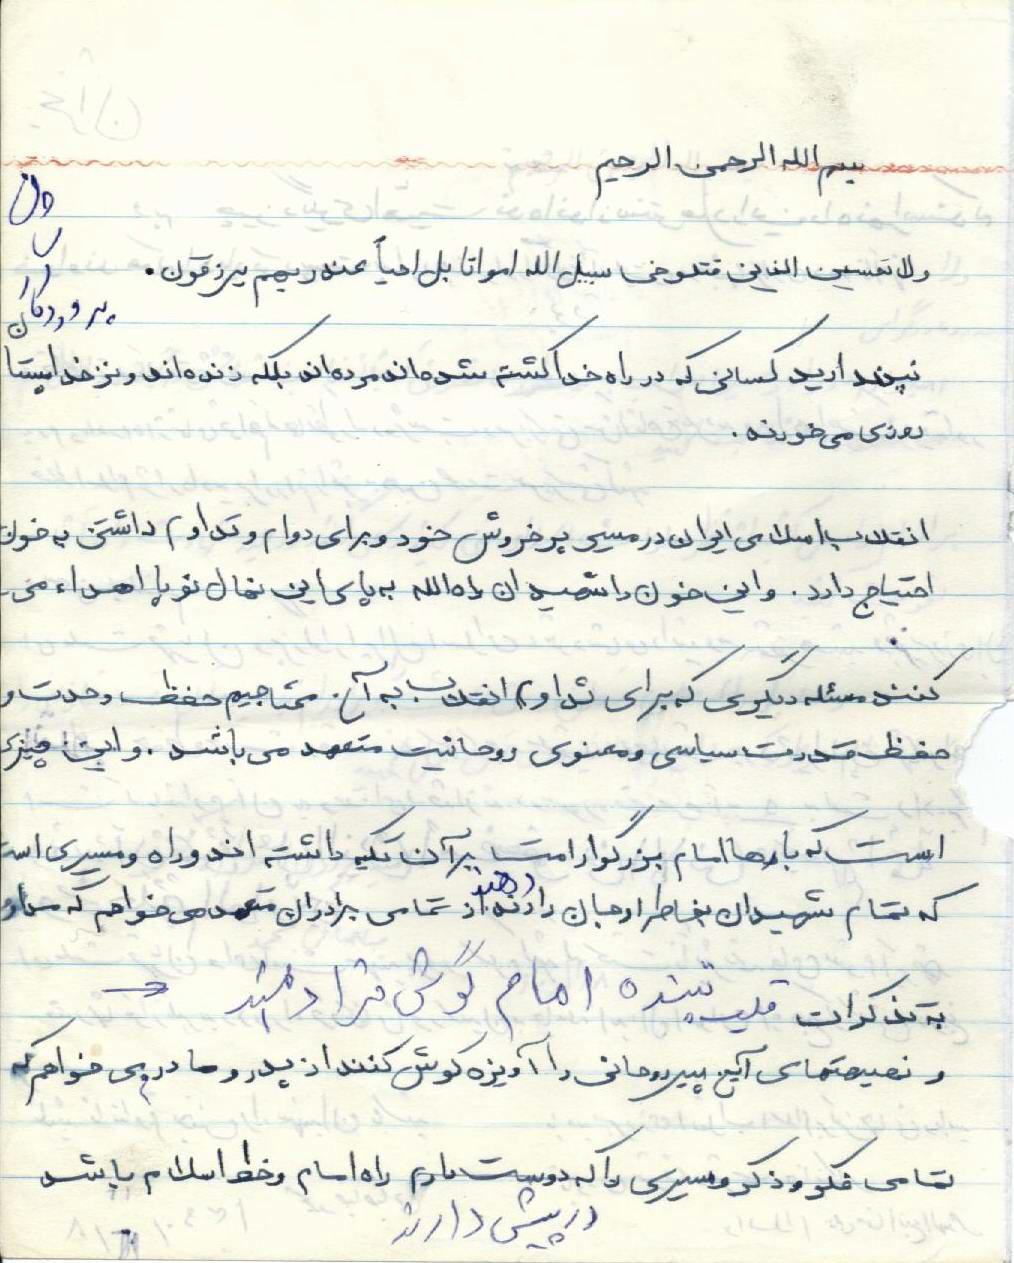 بسم الله الرحمن الرحیم
ولا تحسبن الذین قتلو فی سبیل الله امواتا بل احیاً عند ربهم یرزقون.
پروردگار
نپندارید کسانی که در راه خدا کشته شده‌اند مرده‌اند بلکه زنده‌اند و نزد خدا
روزی می خورند.
انقلاب اسلامی ایران در مسیر پر خروش خود و برای دوام و تداوم داشتن به خون
احتیاج دارد. و این خون را شهیدان راه الله به پای این نهال نو پا اهداء می
کنند مسئله دیگری که برای تداوم انقلاب به آن محتاجیم حفظ وحدت و
حفظ قدرت سیاسی و معنوی روحانیت متعهد می باشد. و این چیزی
است که بارها امام بزرگوار امت بر آن تکیه داشته اند و راه و مسیری است
که تمام شهیدان بخاطر او جان دادند از تمامی برادران متعهد می خواهم که
به تذکرات امام گوش فرا دهند
و نصیحتهای این پیر روحانی را آویزه گوش کنند از پدر و مادرم می خواهم که
تمامی فکر و ذکر و مسیری را که دوست دارم راه امام و خط اسلام باشد
در پیش دارند